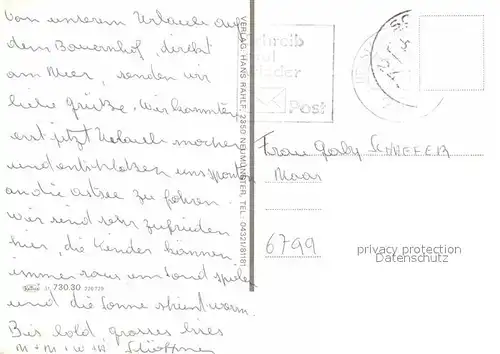 Von unserem Urlaub auf
dem Bauernhof, direkt
am Meer, senden wir
liebe Grüße. Wir konnten
erst jetzt Urlaub machen
und entschlossen uns spontan
an die ostsee zu fahren.
Wir sind sehr zufrieden
hier, die Kinder können
immer raus im Sand spielen
und die Sonne scheint warm.
Bis bald grosses
M + M + W + H
730.30 270729
VERLAG: HANS RAHLF, 2350 NEUMÜNSTER, TEL.: 04321/81181
Schreib
mal
wieder
Post
Frau Gerby SCHAEFER
Maar
6799
privacy protection
Datenschutz